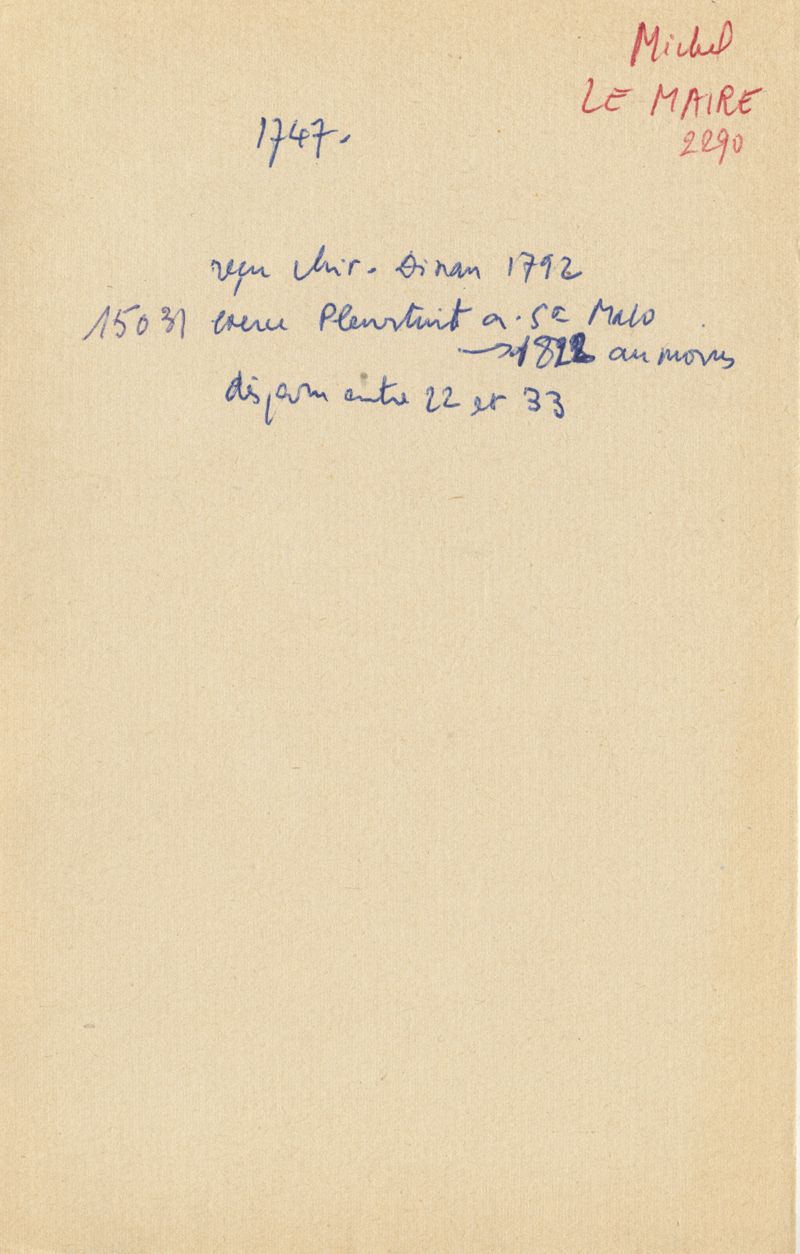 Michel
LE MAIRE
2290
1747.
reçu chir. Dinan 1792
15031 exerce Pleurtuit a. St Malo
→ 1822 au moins
disparu entre 22 et 33